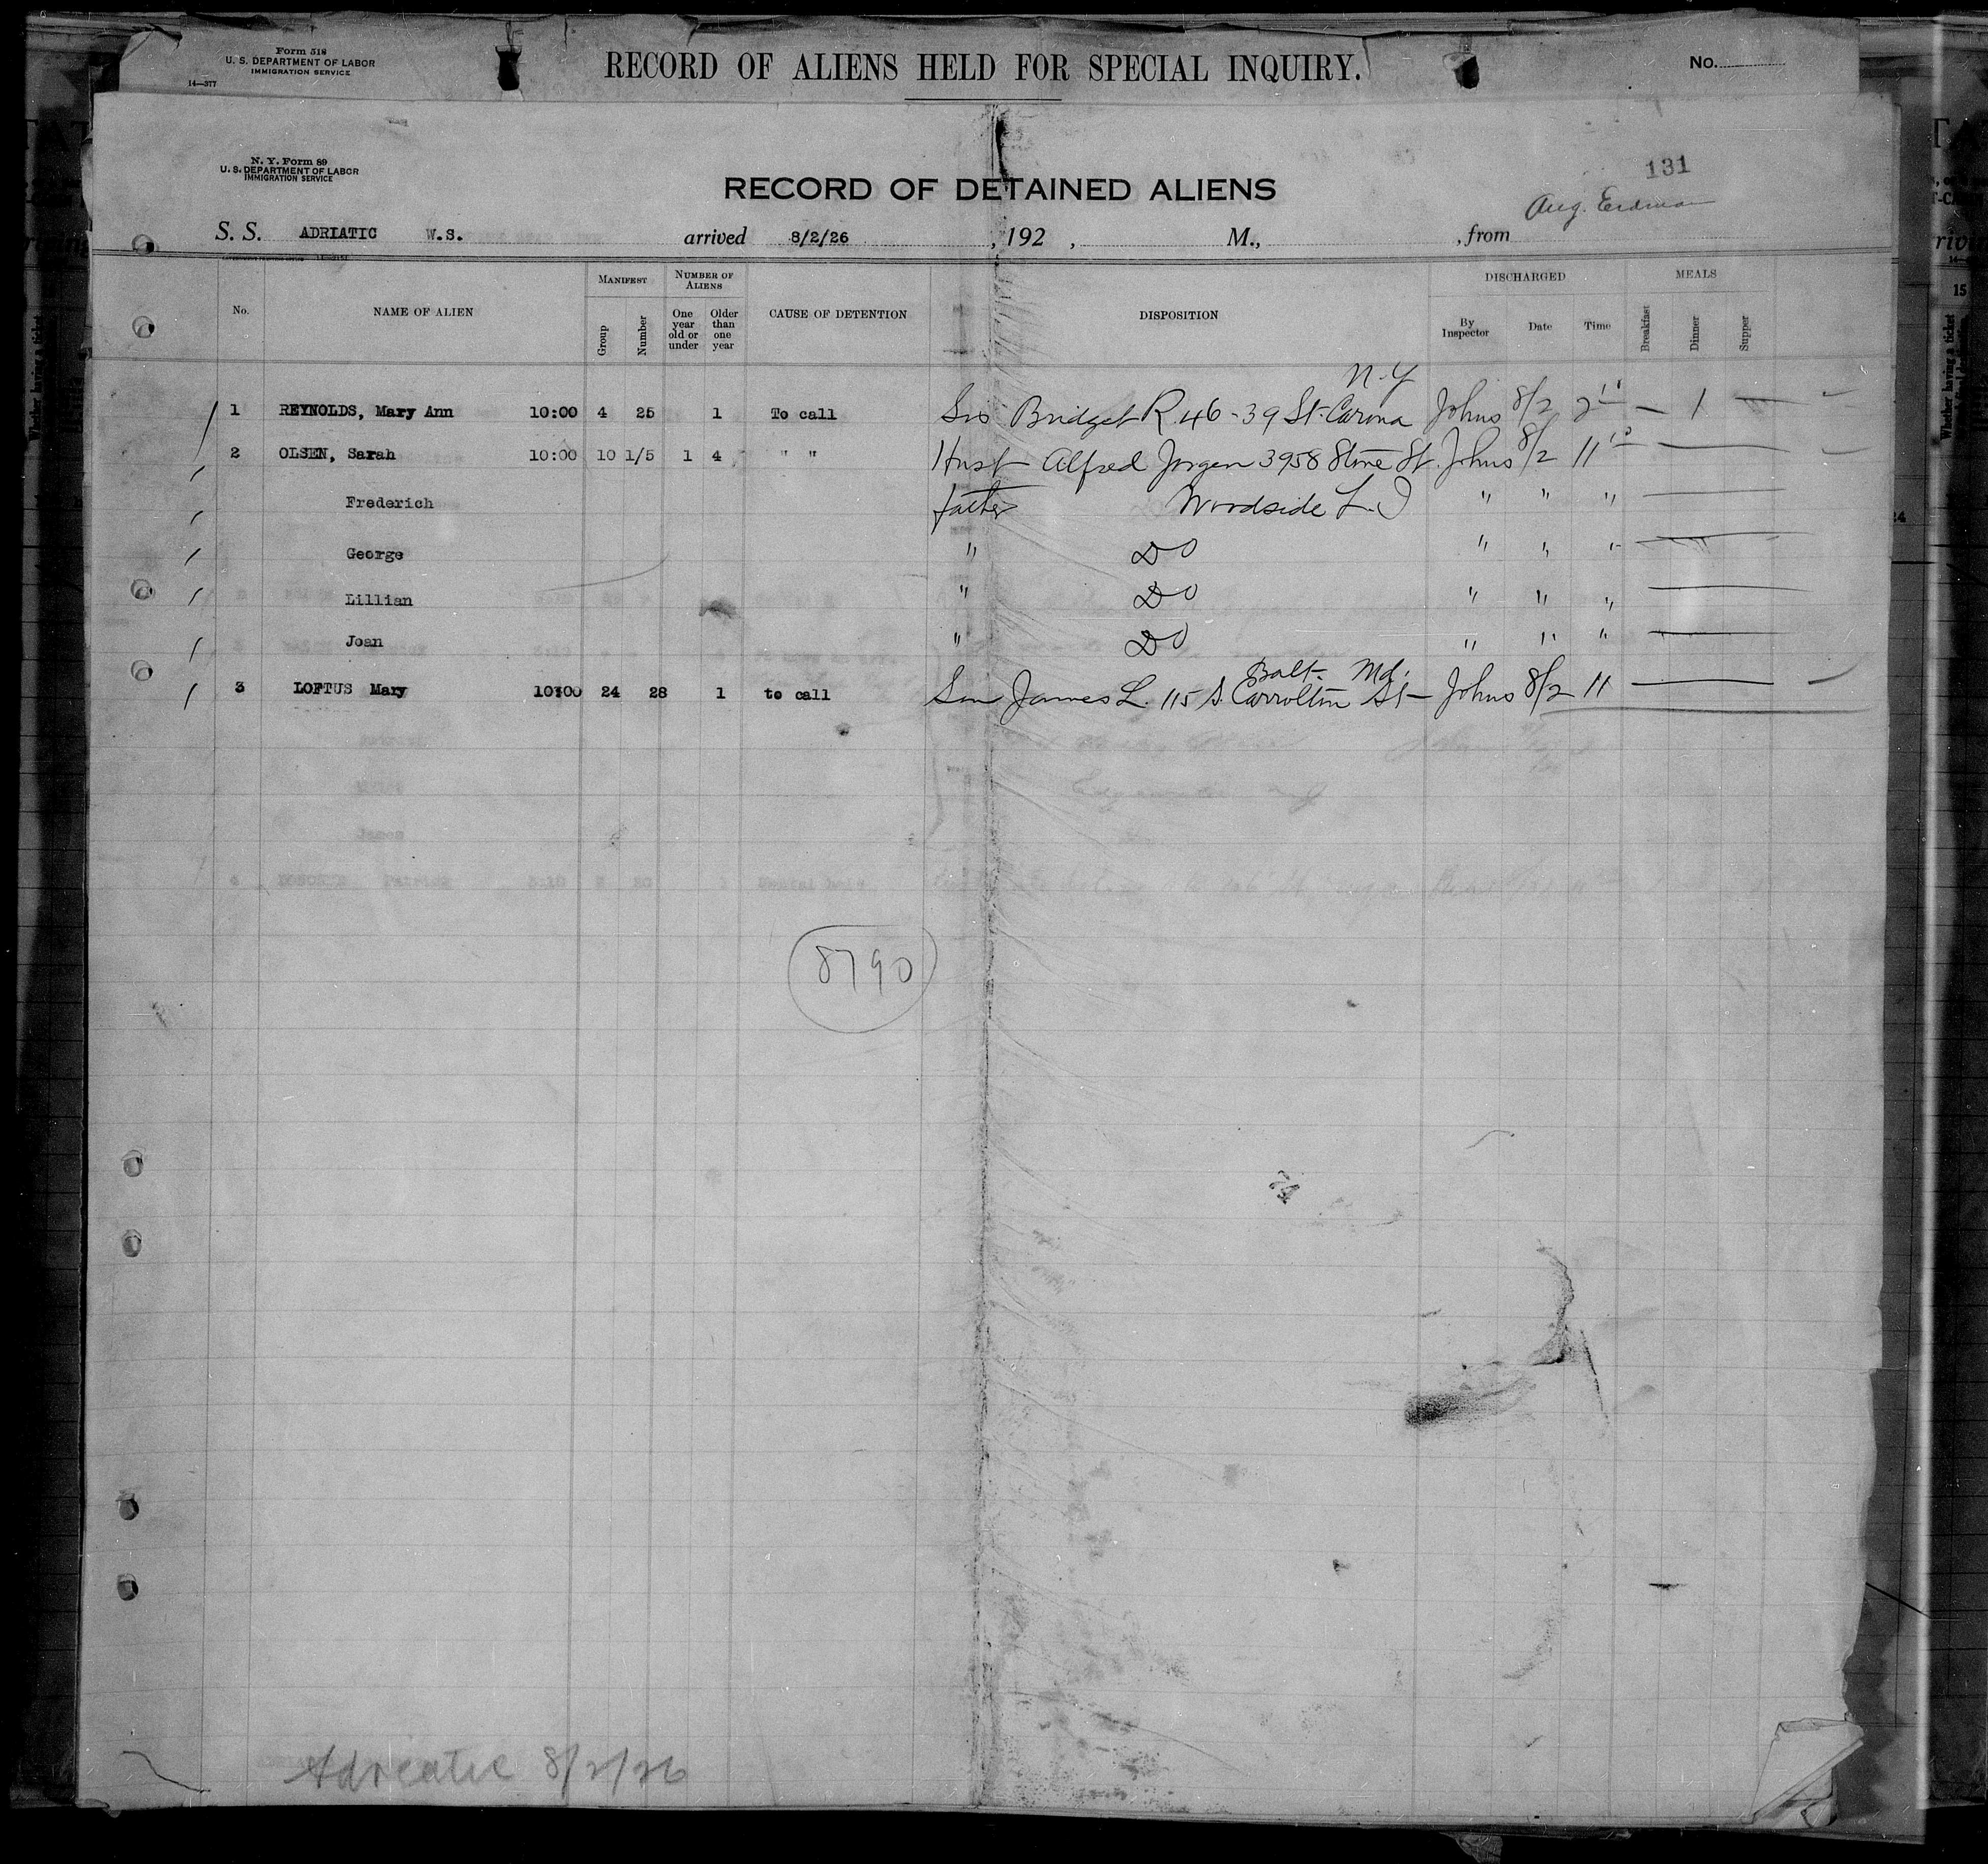 Form 518
U. S. DEPARTMENT OF LABOR
IMMIGRATION SERVICE
14—377
RECORD OF ALIENS HELD FOR SPECIAL INQUIRY.
No.
N. Y. Form 89
U. S. DEPARTMENT OF LABOR
IMMIGRATION SERVICE
131
RECORD OF DETAINED ALIENS
Aug. Erdman
S. S. ADRIATIC W.S. arrived 8/2/26, 192 , M., , from
No. NAME OF ALIEN MANIFEST Group Number NUMBER OF ALIENS One year old or under Older than one year CAUSE OF DETENTION DISPOSITION DISCHARGED By Inspector Date Time MEALS Breakfast Dinner Supper
N.Y
1 REYNOLDS, Mary Ann 10:00 4 25 1 To call Sis Bridget R. 46-39 St. Carona Johns 8/2 2 — 1 —
2 OLSEN, Sarah 10:00 10 1/5 1 4 " " Husb Alfred Jorgen 3958 Stone St. Johns 8/2 11
Frederich father Woodside L. I " " "
George " DO " " "
Lillian " DO " " "
Joan " DO " " "
Balt. Md.
3 LOFTUS Mary 10:00 24 28 1 to call Son James L. 115 S. Carrolton St Johns 8/2 11
James
8790
Adreatic 8/2/26